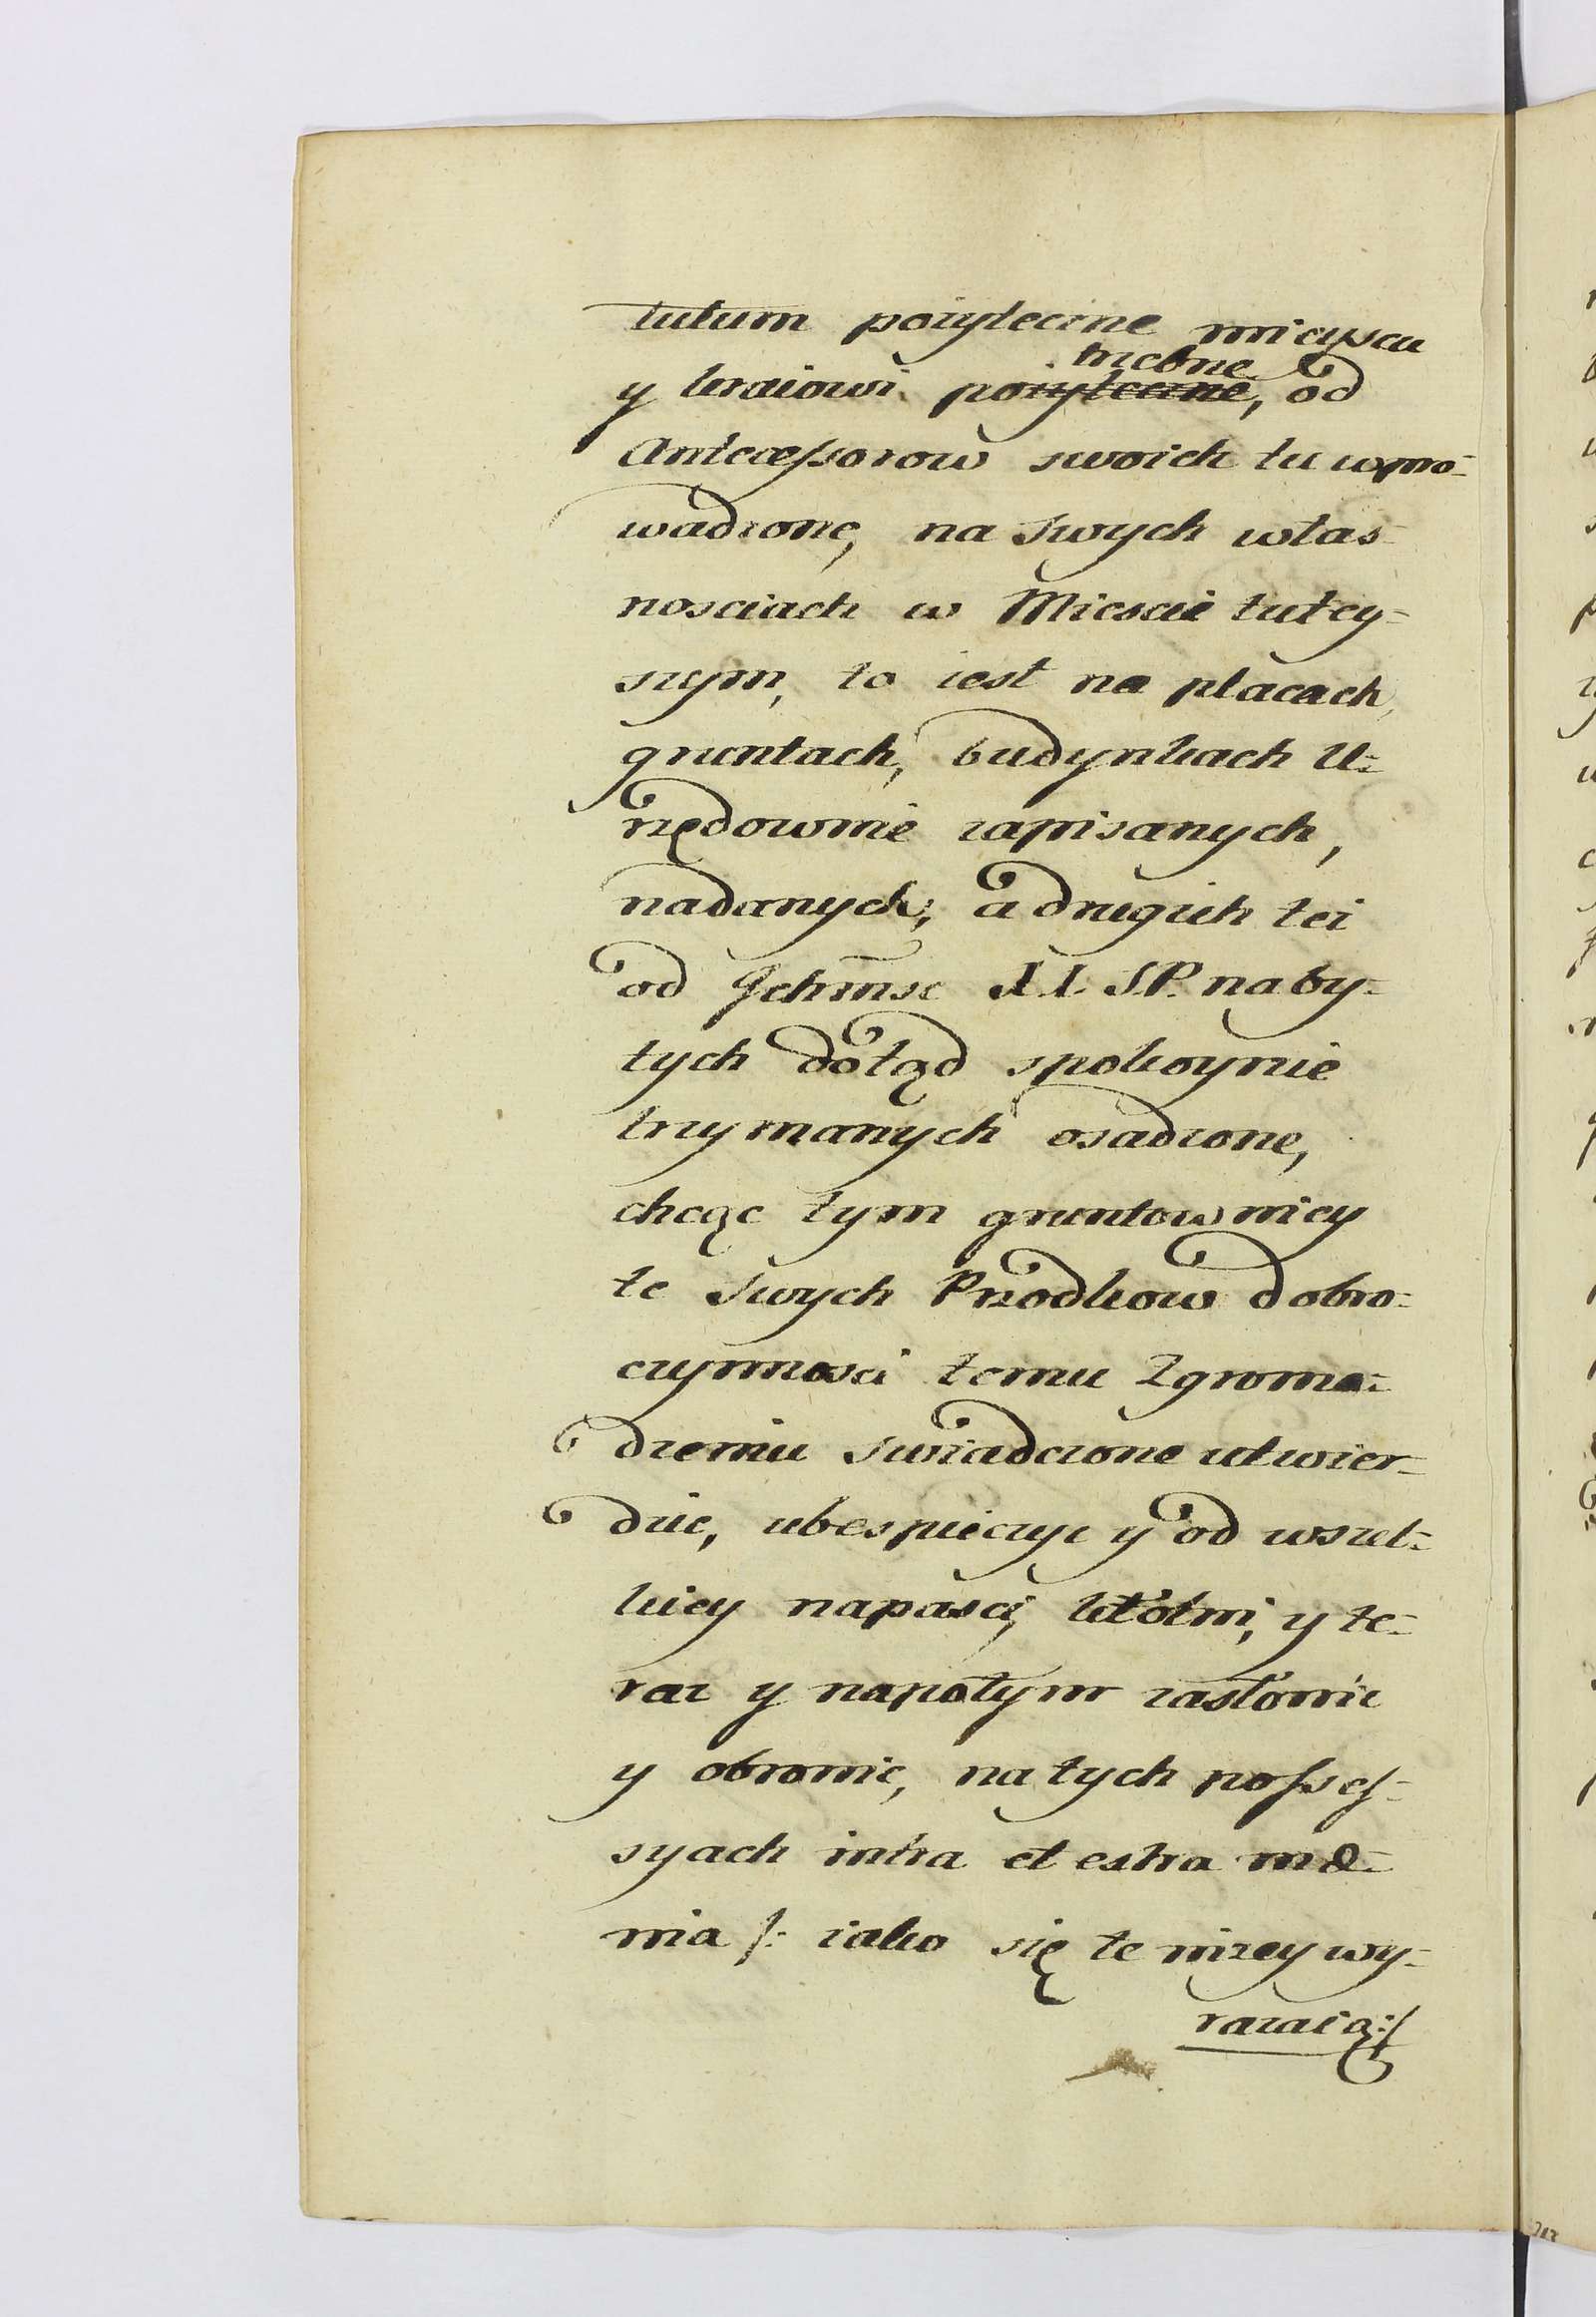 tutum pożyteczne mieyscu
trzebne
y kraiowi pożyteczne, od
Antecessorow swoich tu wpro-
wadzone, na swych włas-
nosciach w Miescie tutey-
szym, to iest na placach,
gruntach, budynkach U-
rzędownie zapisanych,
nadanych; a drugich też
od Jchmsc X.X. S.P. naby-
tych dotąd spokoynie
trzymanych osadzone,
chcąc tym gruntowniey
te swych Przodkow dobro-
czynnosci temu Zgroma-
dzeniu swiadczone utwier-
dzic, ubespieczyc y od wszel-
kiey napasci, kłotni, y te-
raz y napotym zasłonic
y obronic, na tych posses-
syach intra et extra mæ-
nia /: iako się te niżey wy-
razaią:/